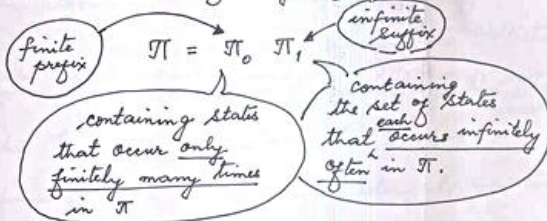 finite
prefix
π = π₀ π₁
infinite
suffix
containing states
that occur only
finitely many times
in π
containing
the set of states
that each occurs infinitely
often in π.